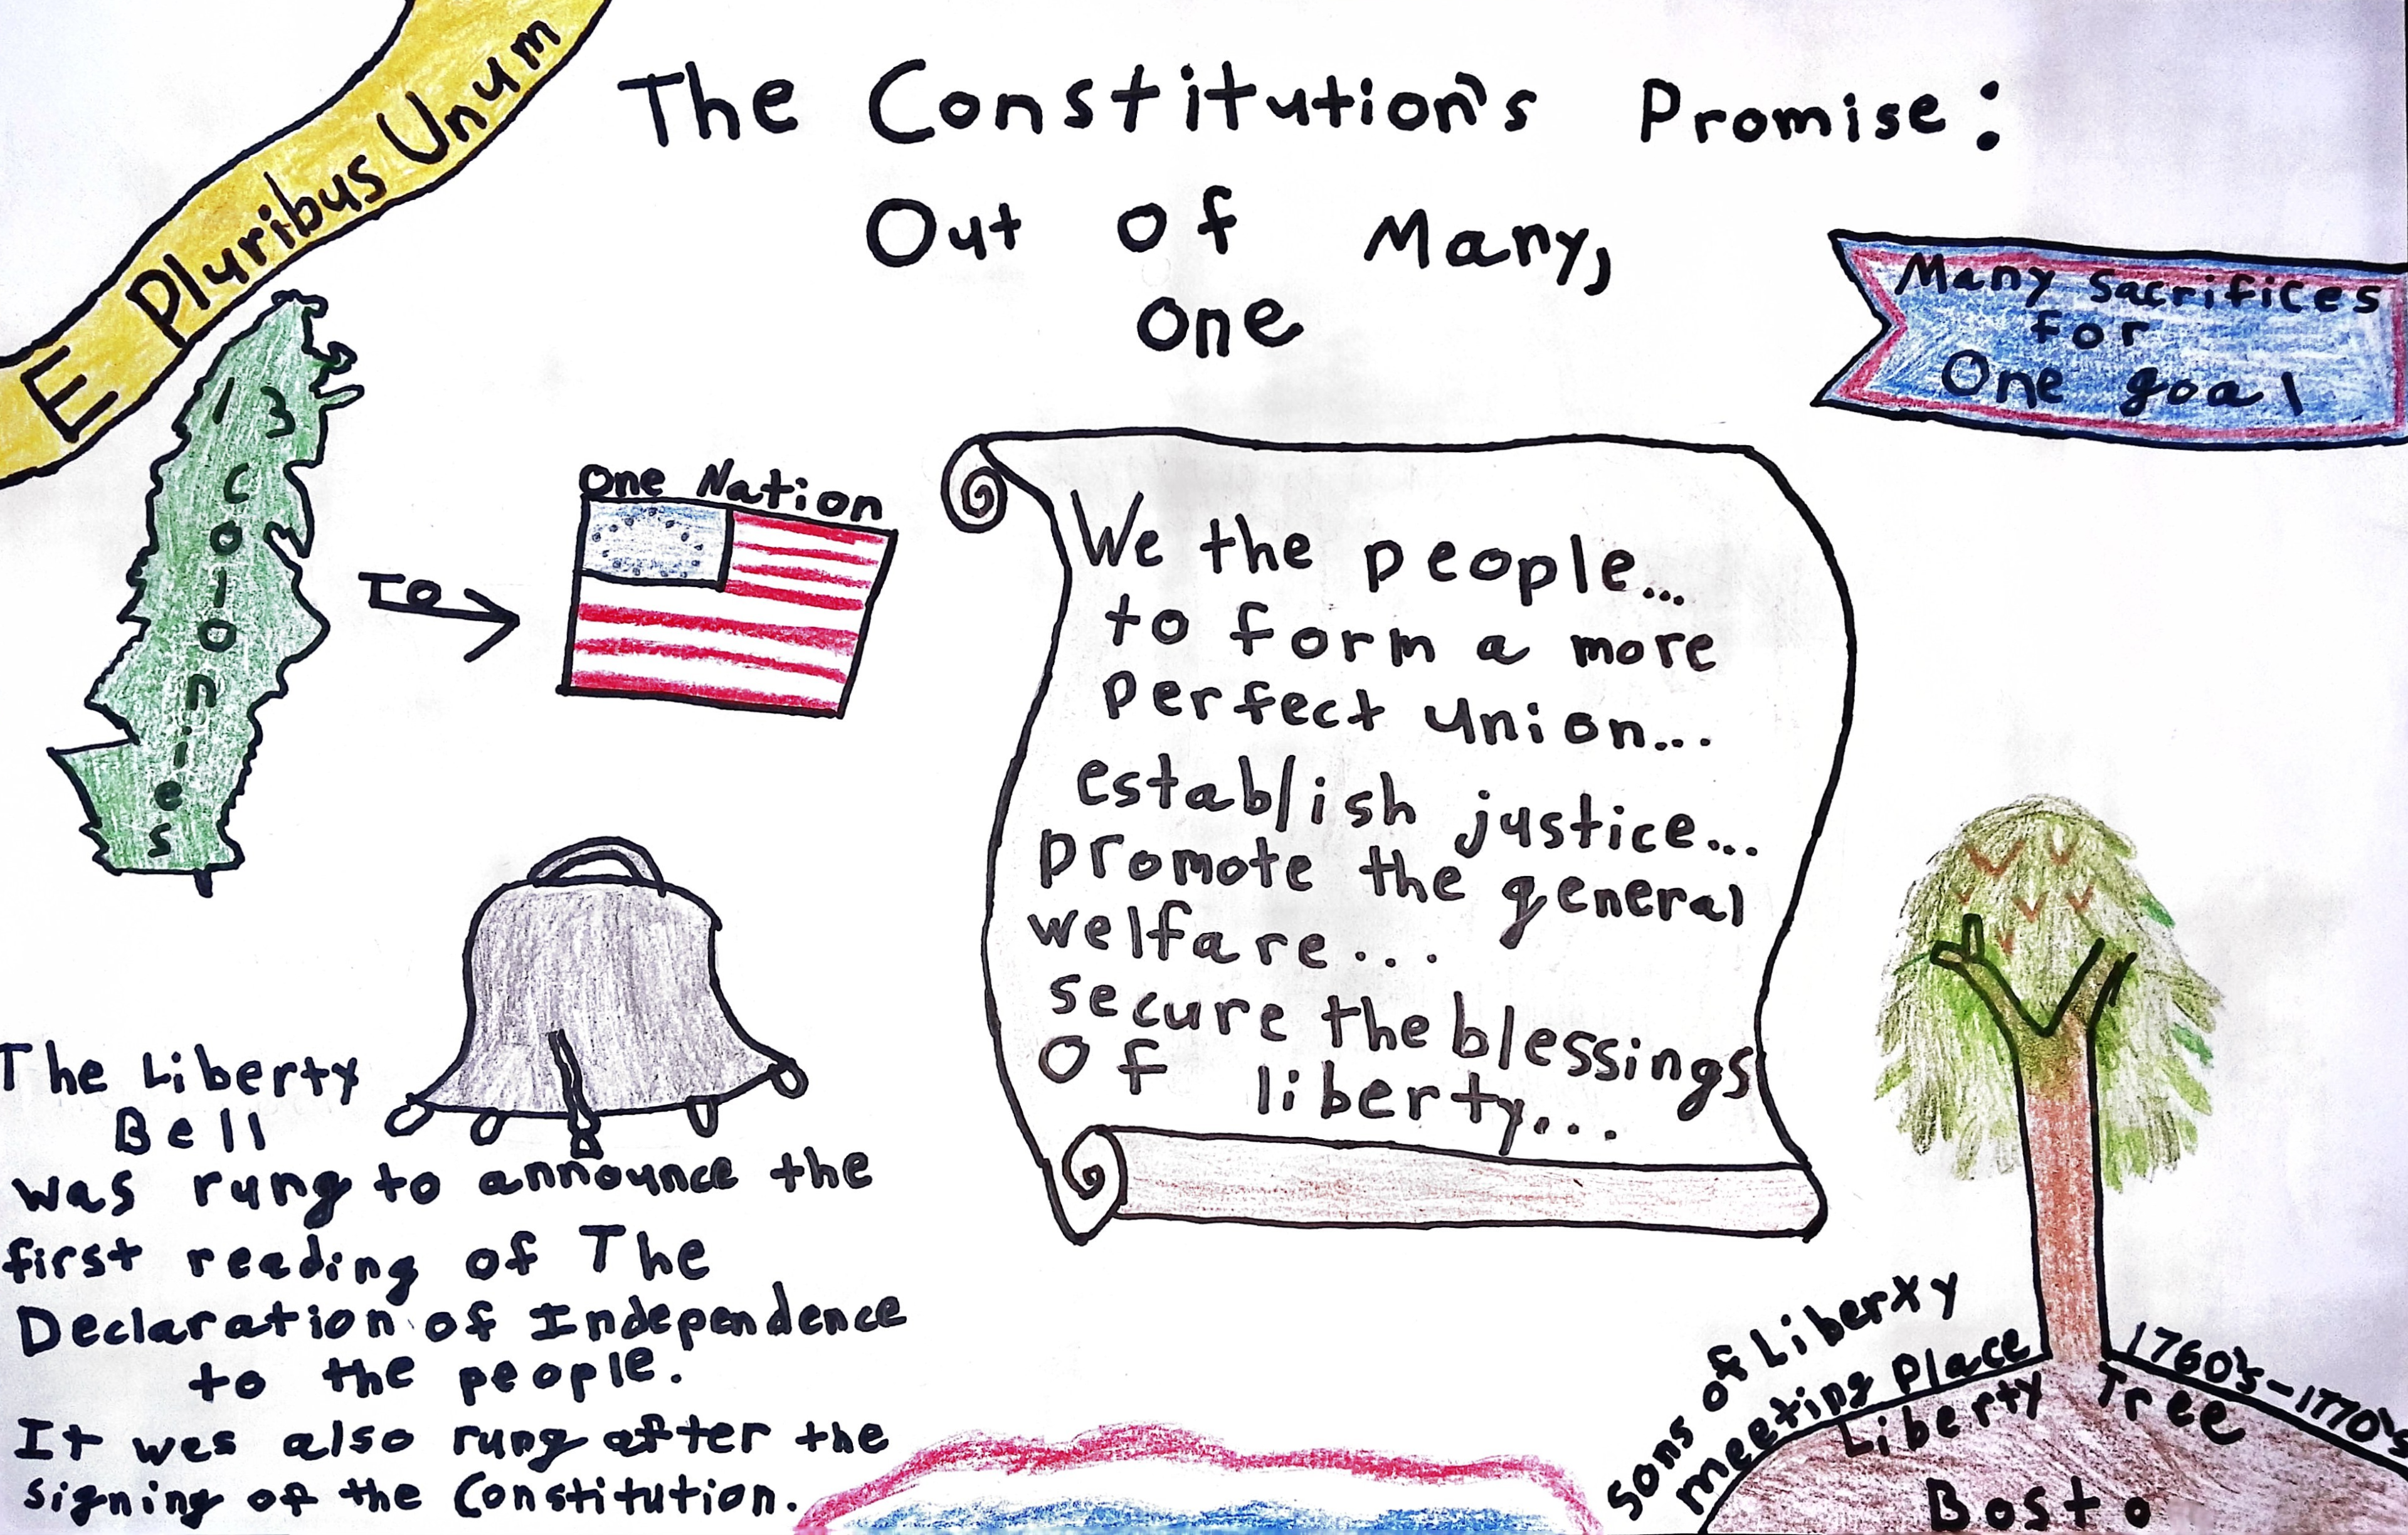 E Pluribus Unum
The Constitution's Promise:
Out of Many,
one
Many Sacrifices
for
One goal
13
colonies
TO
One Nation
We the people...
to form a more
perfect union...
establish justice...
promote the general
welfare...
secure the blessings
of liberty...
The Liberty
Bell
was rung to announce the
first reading of The
Declaration of Independence
to the people.
It was also rung after the
signing of the Constitution.
Sons of Liberxy
meeting Place
1760's-1770's
Liberty Tree
Bosto